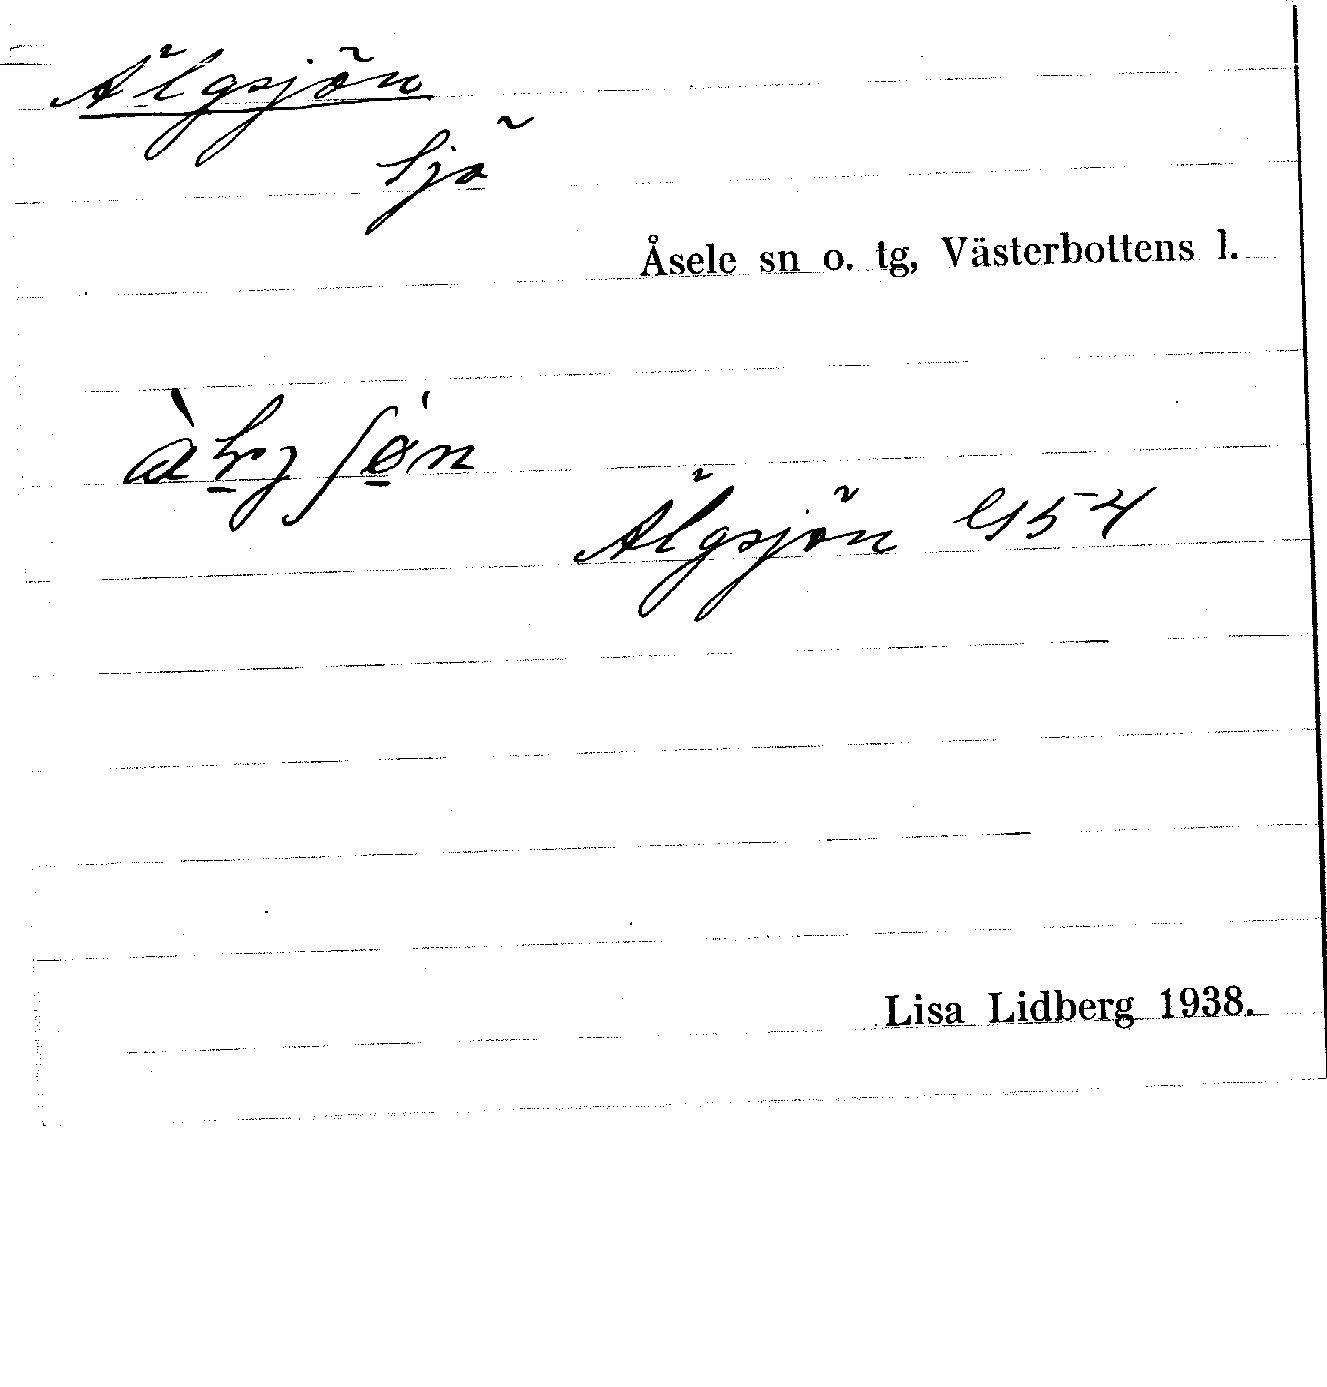 Älgsjön
sjö
Åsele sn o. tg, Västerbottens l.
Älgsjön G 54
Lisa Lidberg 1938.